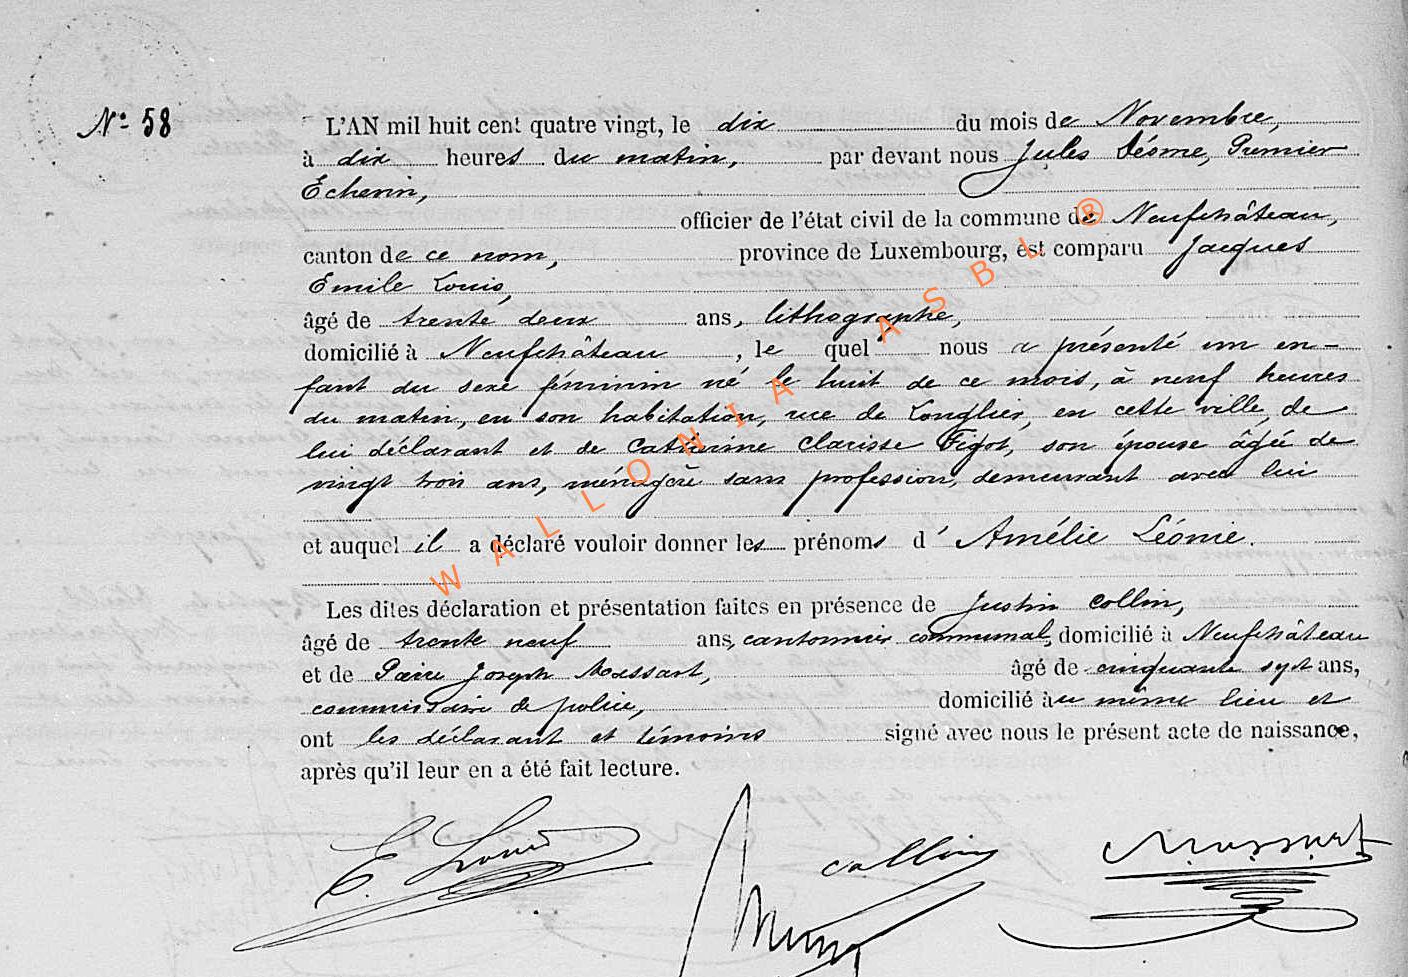 N° 58
L'AN mil huit cent quatre vingt, le dix du mois de Novembre,
à dix heures du matin, par devant nous Jules Désme, Premier
Echevin,
officier de l'état civil de la commune de Neufchâteau,
canton de ce nom, province de Luxembourg, est comparu Jacques
Emile Louis,
âgé de trente deux ans, lithographe,
domicilié à Neufchâteau, le quel nous a présenté un en-
fant du sexe féminin né le huit de ce mois, à neuf heures
du matin, en son habitation, rue de Longlier, en cette ville, de
lui déclarant et de Catherine Clarisse Figot, son épouse âgée de
vingt trois ans, ménagère sans profession, demeurant avec lui
et auquel il a déclaré vouloir donner les prénoms d'Amélie Léonie.
Les dites déclaration et présentation faites en présence de Justin Collin,
âgé de trente neuf ans, cantonnier communal, domicilié à Neufchâteau
et de Pierre Joseph Massart, âgé de cinquante sept ans,
commissaire de police, domicilié au même lieu et
ont les déclarant et témoins signé avec nous le présent acte de naissance,
après qu'il leur en a été fait lecture.
E. Louis Collin Massart
WALLONIA ASBL ®